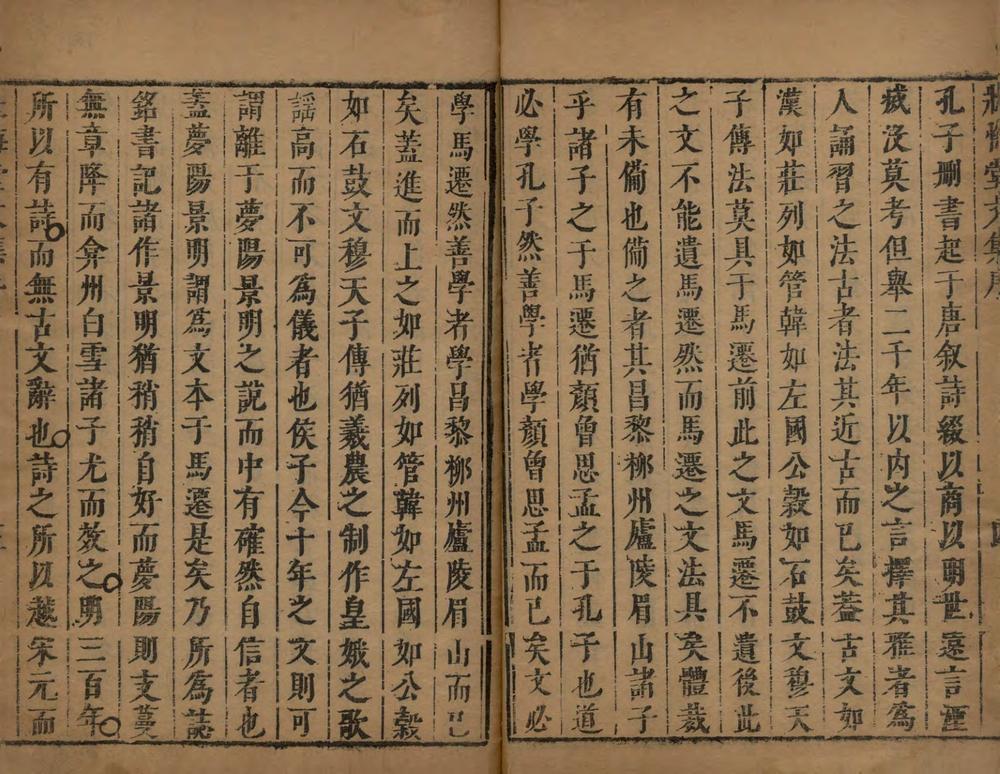 壯悔堂文集序
孔子刪書起于唐叙詩綴以商以明世遠言湮
滅沒莫考但舉二千年以内之言擇其雅者為
人誦習之法古者法其近古而已矣蓋古文如
漢如莊列如管韓如左國公穀如石鼓文穆天
子傳法莫具于馬遷前此之文馬遷不遺後此
之文不能遺馬遷然而馬遷之文法具矣體裁
有未僃也僃之者其昌黎柳州廬陵眉山諸子
乎諸子之于馬遷猶顏曾思孟之于孔子也道
必學孔子然善學者學顏曾思孟而已矣文必
學馬遷然善學者學昌黎柳州廬陵眉山而已
矣蓋進而上之如莊列如管韓如左國如公穀
如石鼓文穆天子傳猶羲農之制作皇娥之歌
謡高而不可為儀者也侯子今十年之文則可
謂離于夢陽景明之說而中有確然自信者也
蓋夢陽景明謂為文本于馬遷是矣乃所為誌
銘書記諸作景明猶稍稍自好而夢陽則支蔓
無章降而弇州白雪諸子尤而效之明三百年
所以有詩而無古文辭也詩之所以越宋元而